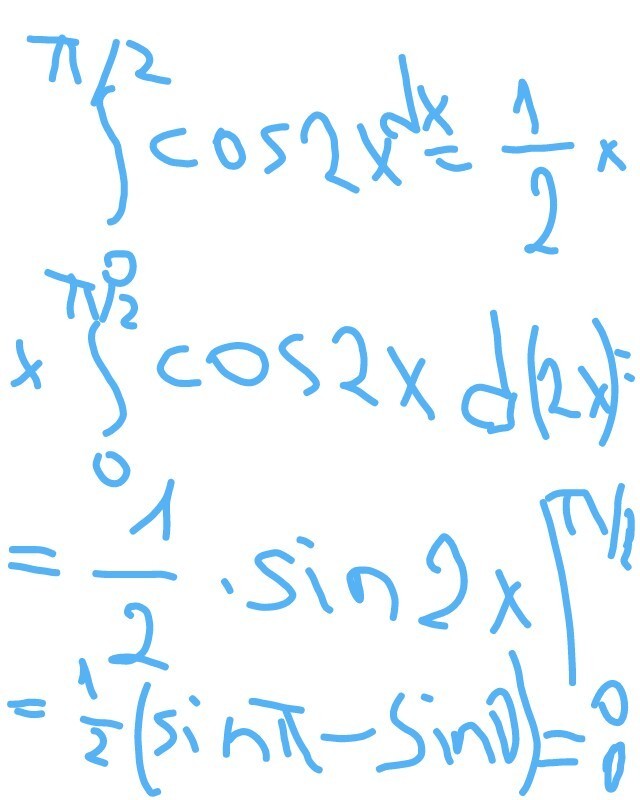 π/2
∫ cos2x dx = 1/2 ×
0
π/2
× ∫ cos2x d(2x) =
0
= 1/2 · sin2x |₀^π/2
= 1/2 (sinπ - sin0) = 0